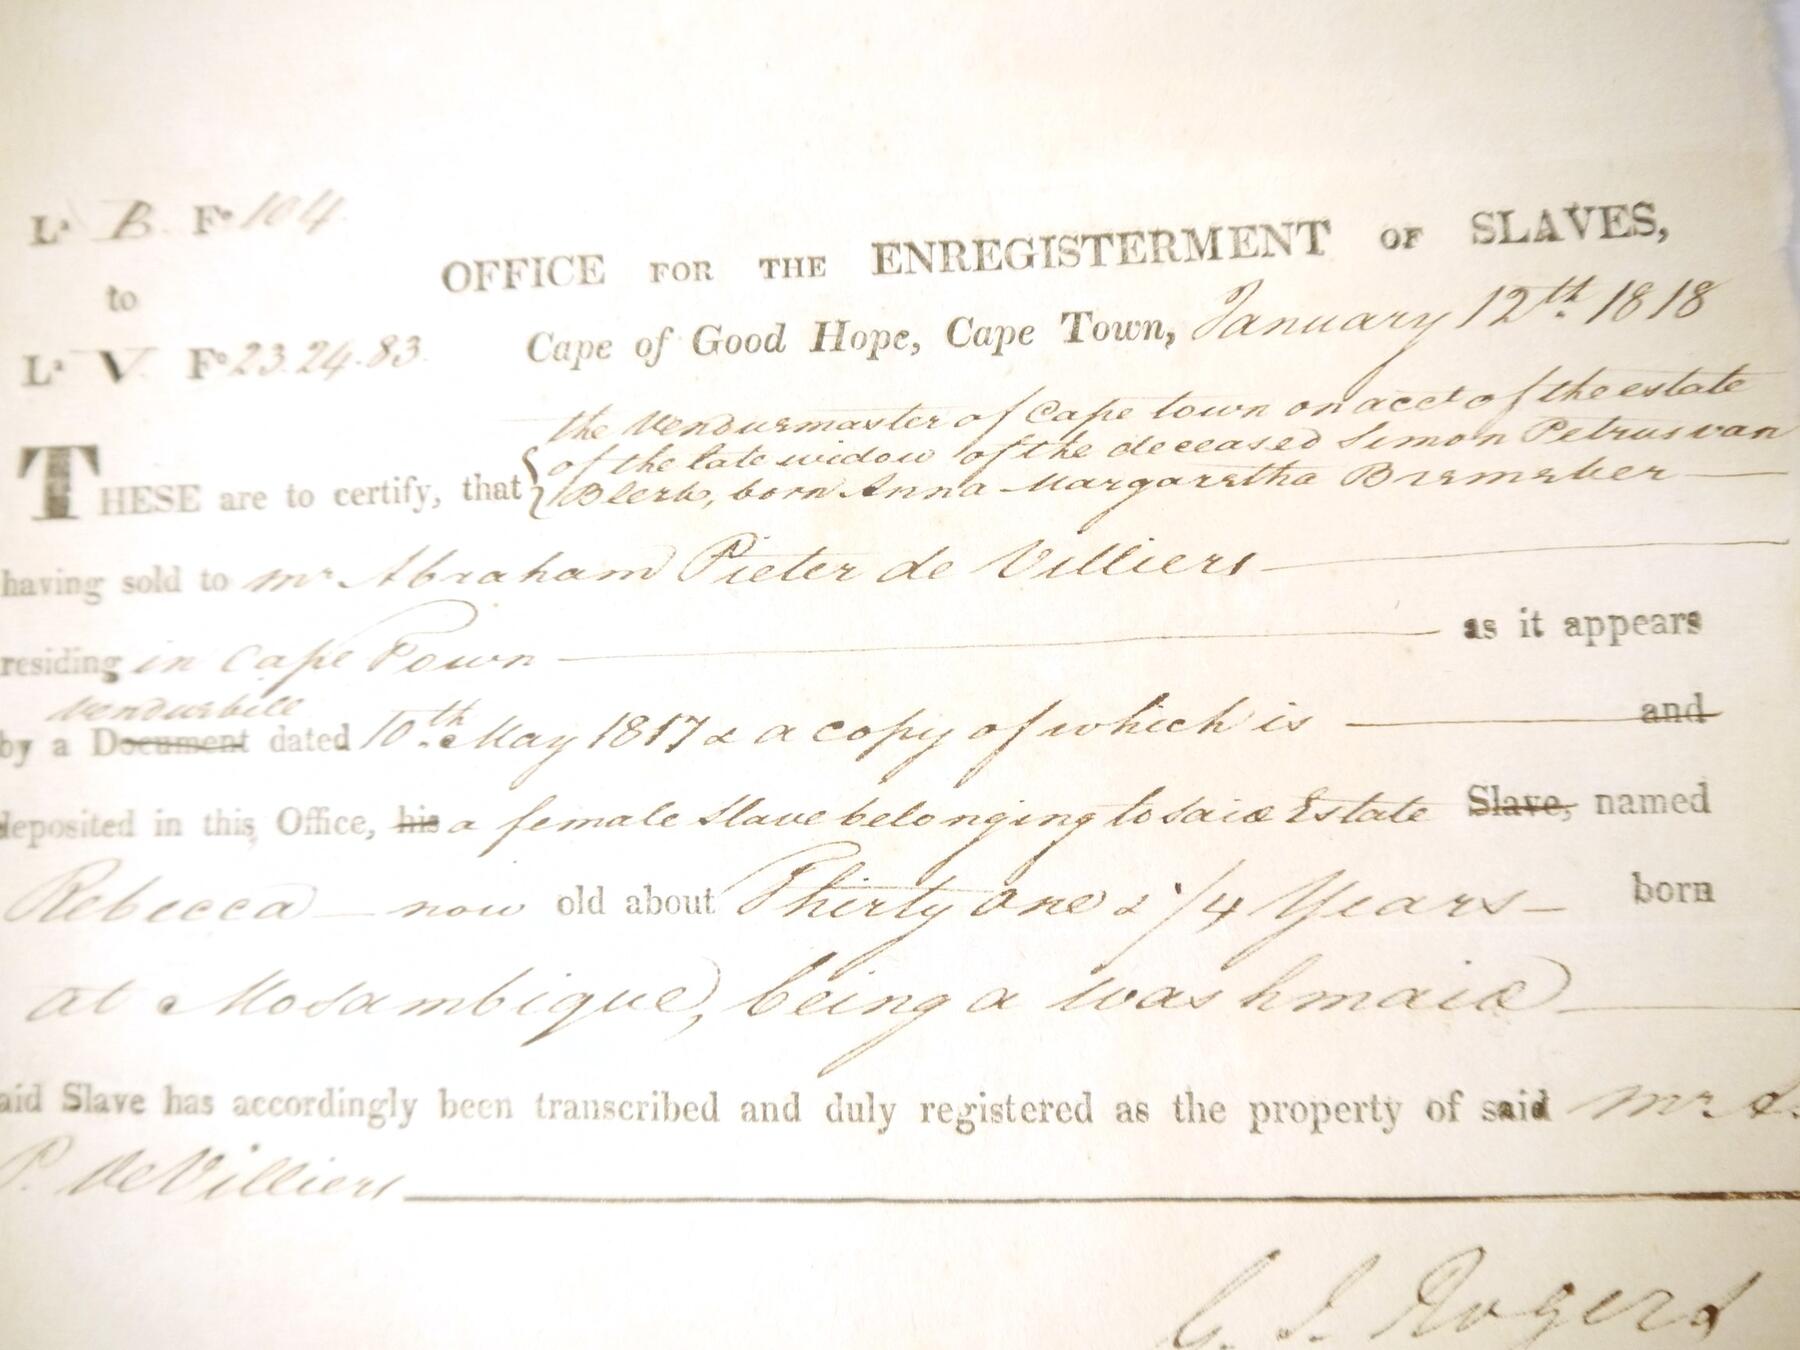 Lᵃ B. Fᵒ 104
to
Lᵃ V. Fᵒ 23.24.83.
OFFICE FOR THE ENREGISTERMENT OF SLAVES,
Cape of Good Hope, Cape Town, January 12th. 1818
the Venduemaster of Cape town on acct of the estate
of the late widow of the deceased Simon Petrus van
THESE are to certify, that Blerk, born Anna Margaretha
having sold to Mr Abraham Pieter de Villiers
residing in Cape Town as it appears
Venduebill
by a Document dated 10th. May 1817 & a copy of which is and
deposited in this Office, his a female Slave belonging to said Estate Slave, named
Rebecca now old about Thirty One & 1/4 Years born
at Mosambique, being a washmaid
aid Slave has accordingly been transcribed and duly registered as the property of said Mr A.
P. de Villiers
Rogers